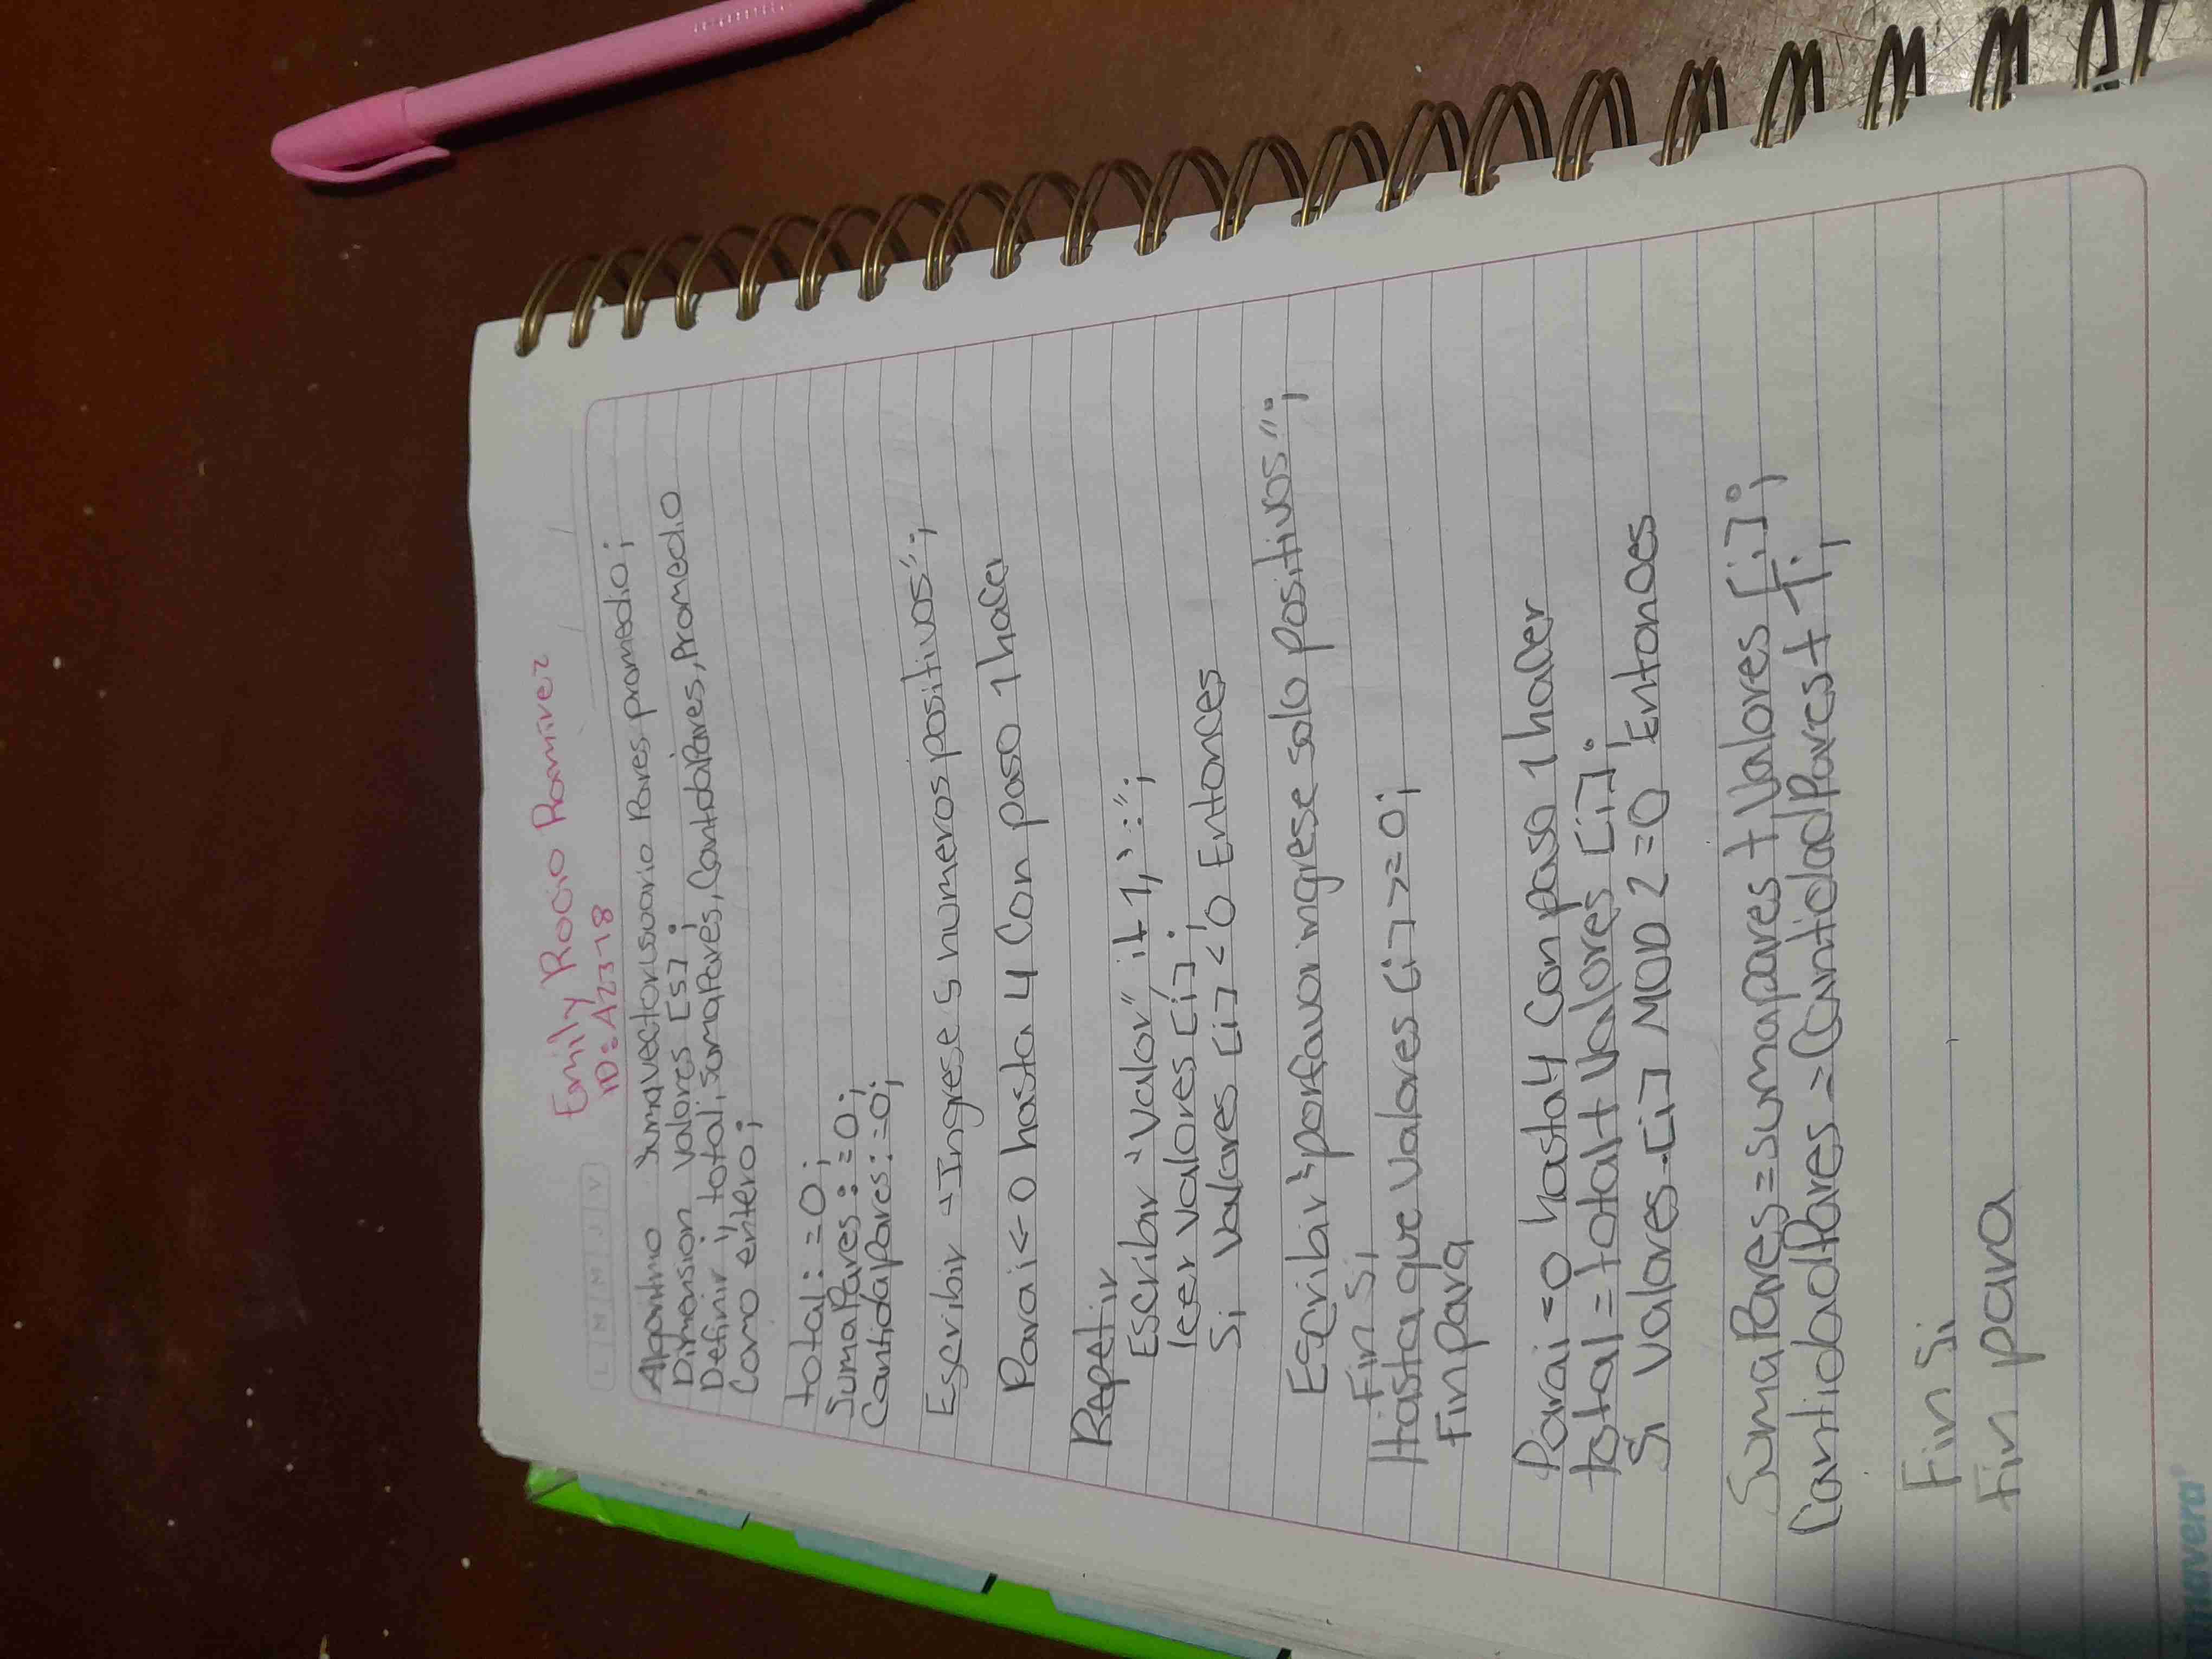 Emily Rocio Ramirez
ID: A23-18
L M M J V
Algoritmo sumavectorusuario Pares promedio;
Dimension valores [5];
Definir i, total, sumaPares, CantidaPares, Promedio
Como entero;
total:=0;
SumaPares:=0;
CantidaPares:=0;
Escribir "Ingrese 5 numeros positivos";
Para i<-0 hasta 4 Con paso 1 hacer
Repetir
Escribir "Valor" i+1, ":";
leer valores [i];
Si valores [i] <0 Entonces
Escribir "porfavor ingrese solo positivos";
Fin Si
Hasta que valores [i] >=0;
Fin para
Para i=0 hasta 4 Con paso 1 hacer
total=total+Valores [i];
Si valores [i] MOD 2=0 Entonces
SumaPares=sumapares+Valores [i];
CantidadPares=CantidadPares+1;
Fin Si
Fin para